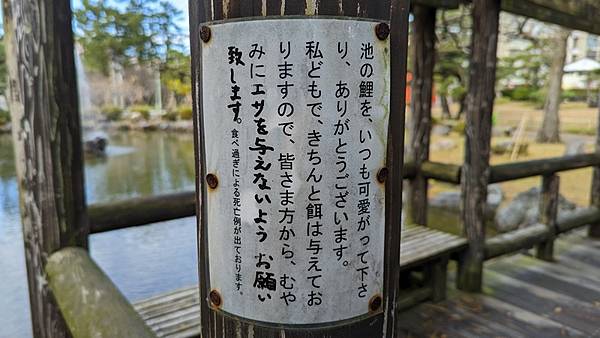 池の鯉を、いつも可愛がって下さ
り、ありがとうございます。
私どもで、きちんと餌は与えてお
りますので、皆さま方から、むや
みにエサを与えないよう お願い
致します。食べ過ぎによる死亡例が出ております。